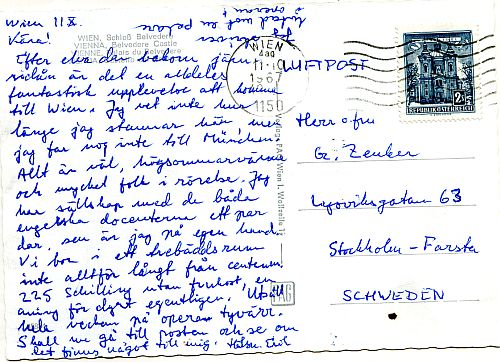 Wien 11 X.
Kära!
Efter
är det en alldeles
fantastisk upplevelse att komma
till Wien. Jag vet inte hur
länge jag stannar här men
jag far nog inte till München
Allt är väl, högsommarvärme
och mycket folk i rörelse. Jag
har sällskap med de båda
engelska docenterna ett par
dar, sen är jag på egen hand
Vi bor i ett trebäddsrum
inte alltför långt från centrum
225 Schilling utan frukost, en
aning för dyrt egentligen. Utsåld
hela veckan på operan tyvärr.
Skall nu gå till posten och se om
det finns något till mig.
WIEN, Schloß Belvedere
VIENNA, Belvedere Castle
VIENNE, Palais du Belvedere
WIEN
1967
1150
REPUBLIK ÖSTERREICH
LUFTPOST
Herr o fru
G. Zenker
63
Stockholm-Farsta
SCHWEDEN
PAG